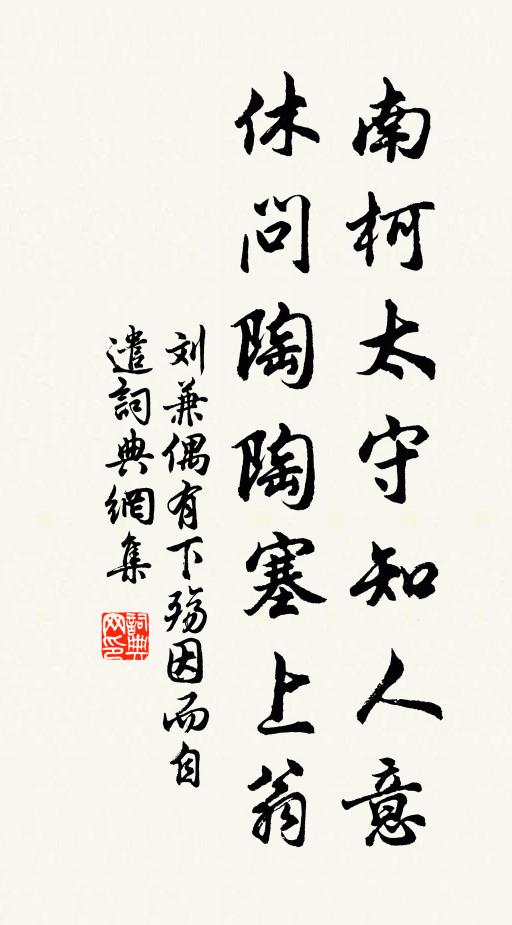 南柯太守知人意
休问陶陶塞上翁
刘兼偶有下殇因而自
遣詞典網集
詞典网印